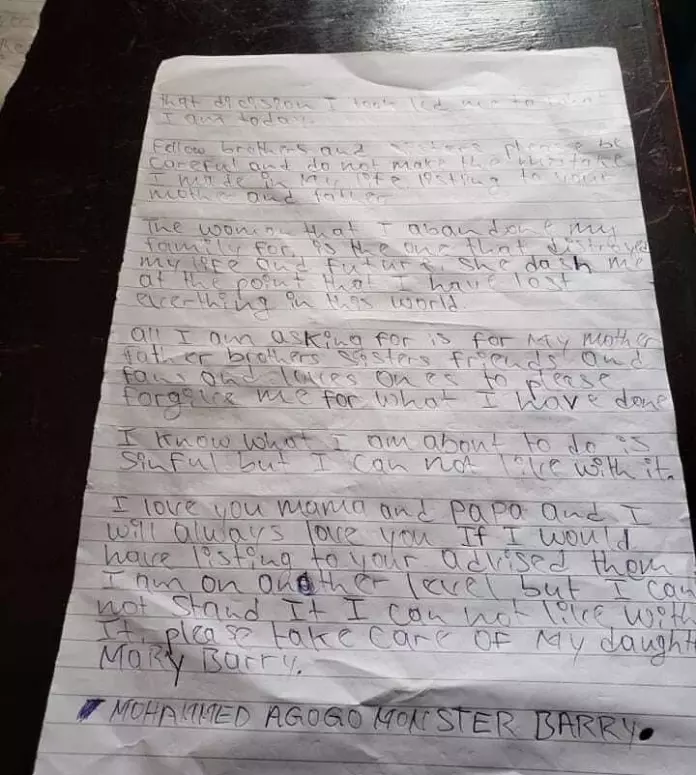 that dicision I took led me to
I am today.
Fellow brothers and sisters please be
careful and do not make the mistake
I made in my life listing to your
mother and father
The woman that I abandone my
family for, is the one that distroyed
my life and future, she dash me
at the point that I have lost
everthing in this world.
All I am asking for is for my mother
father brothers sisters friends and
fans and loves ones to please
forgive me for what I have done
I know what I am about to do is
sinful but I can not live with it.
I love you mama and PaPa and I
will always love you If I would
have listing to your advised them
I am on another level but I can
not stand It I can not live with
It, please take care of my daught
Mary Barry.
MOHAMMED AGOGO MONSTER BARRY.